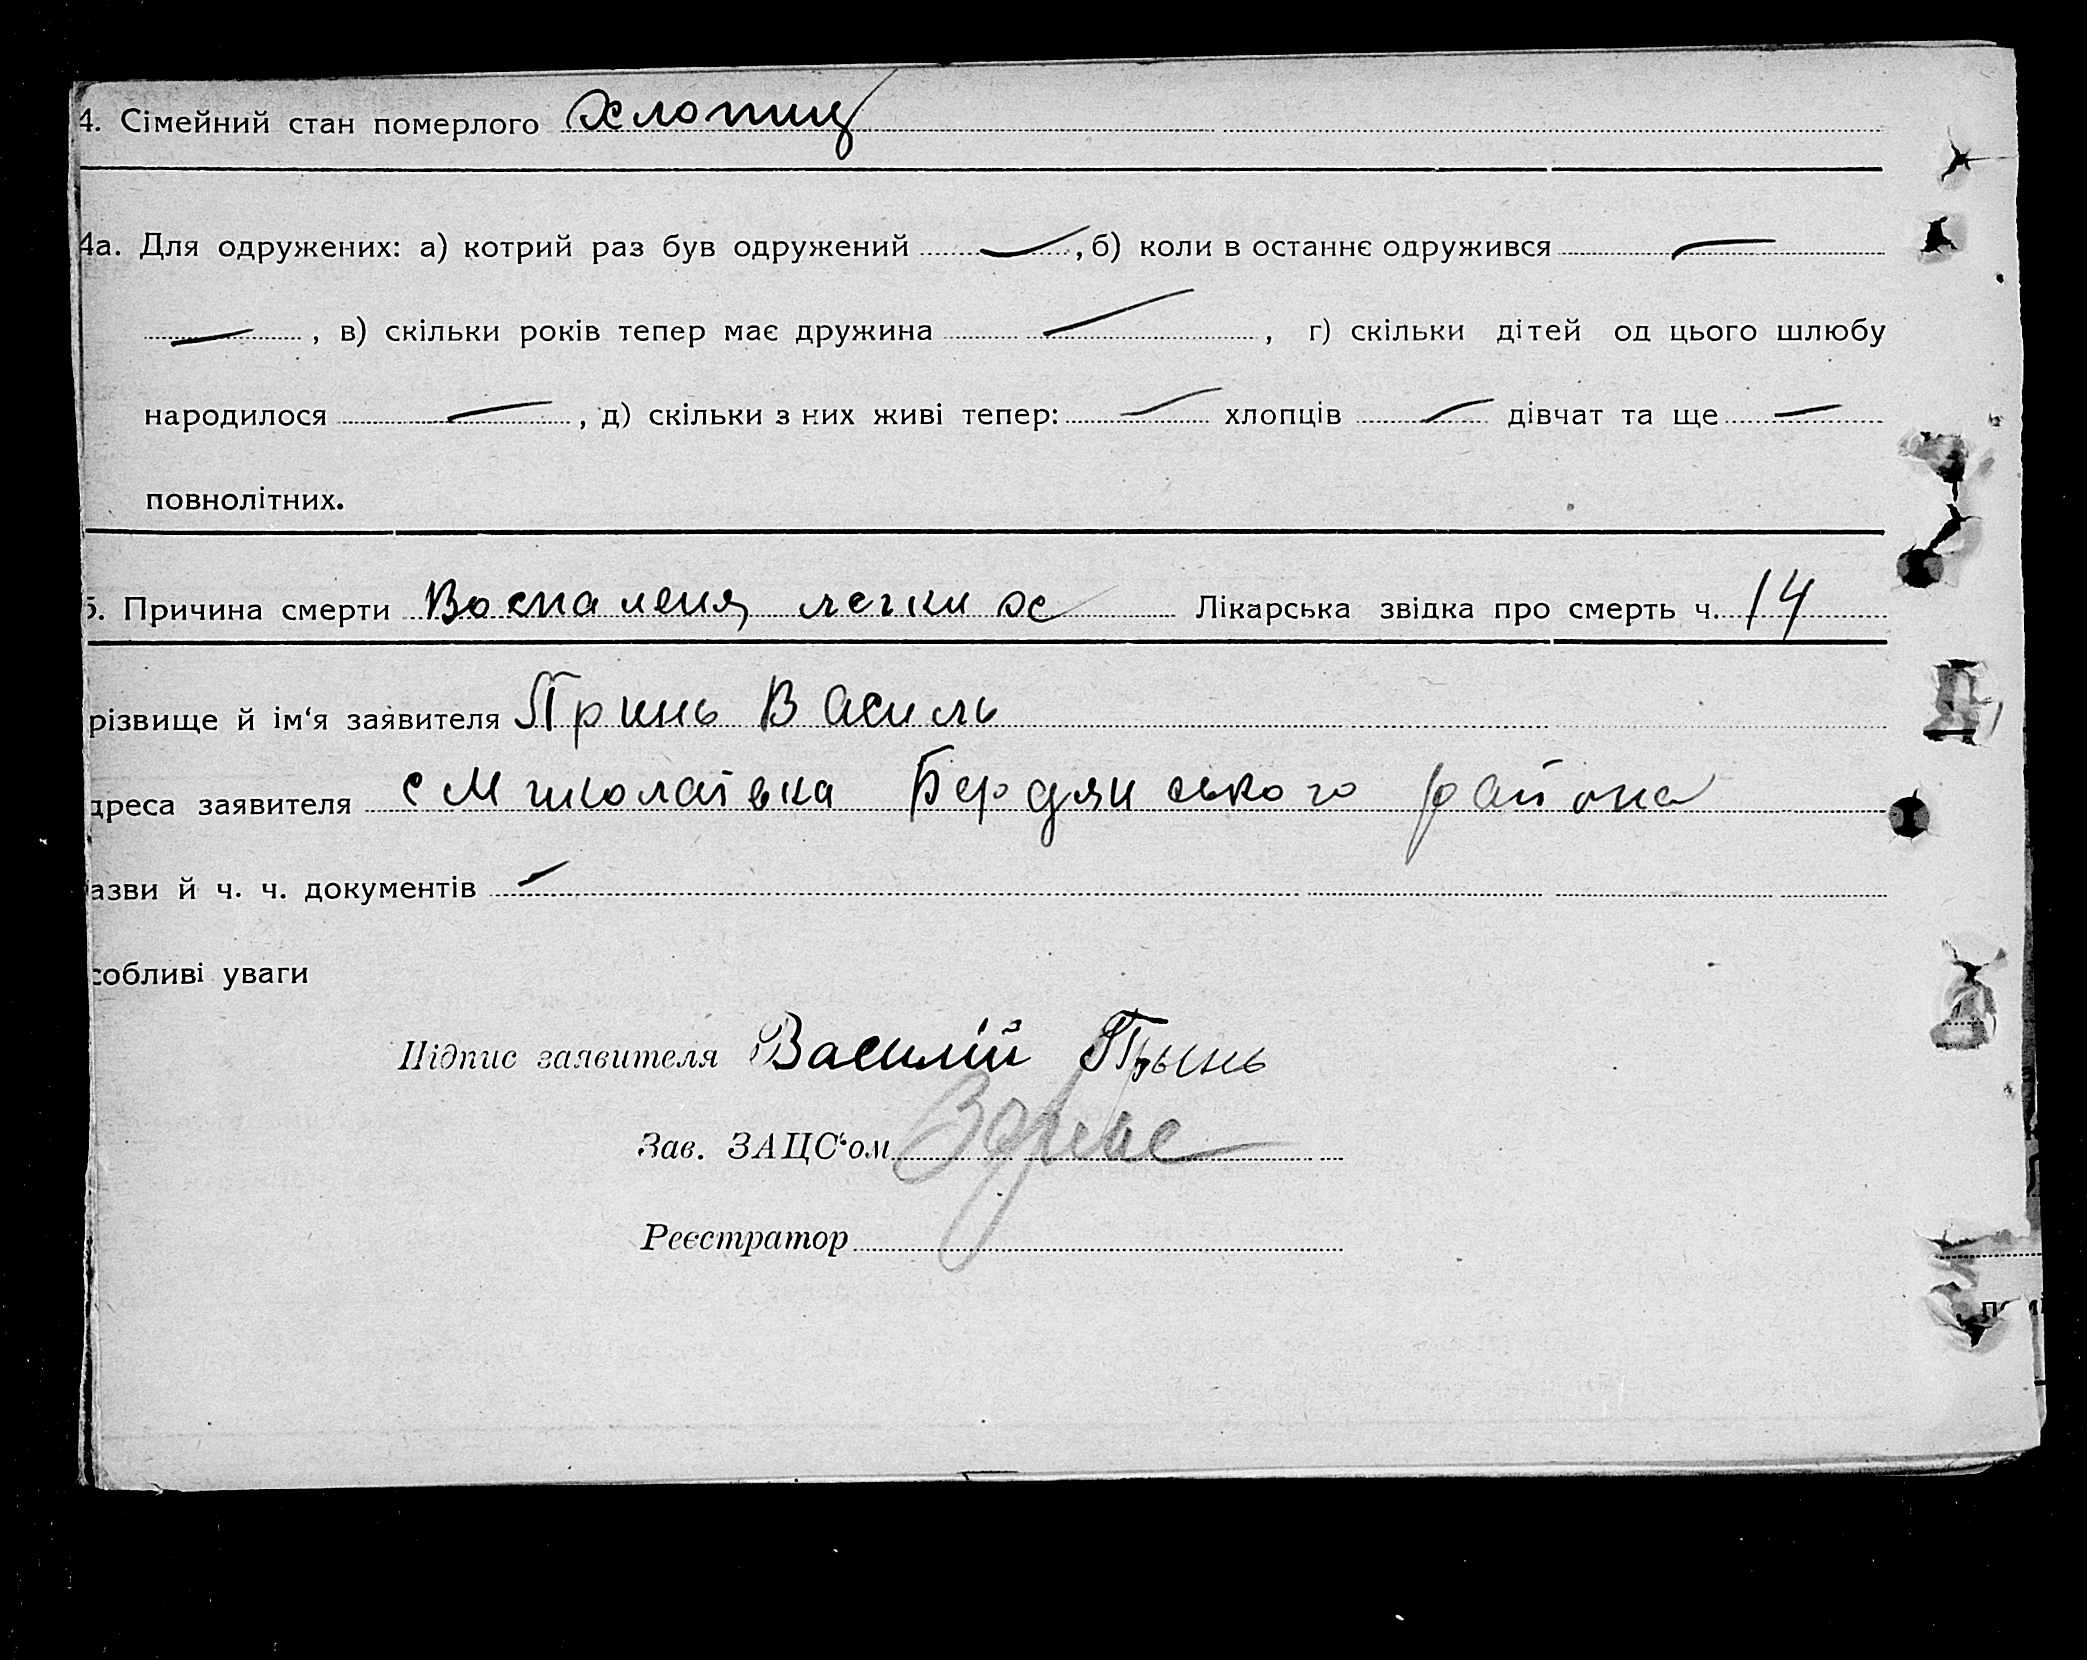 4. Сімейний стан померлого хлопиц
4а. Для одружених: а) котрий раз був одружений , б) коли в останнє одружився
, в) скільки років тепер має дружина , г) скільки дітей од цього шлюбу
народилося , д) скільки з них живі тепер: хлопців дівчат та ще
повнолітних.
5. Причина смерти Воспаленя легких Лікарська звідка про смерть ч. 14
різвище й ім‘я заявителя Принь Василь
дреса заявителя с Миколаївка Бердянського района
азви й ч. ч. документів
собливі уваги
Підпис заявителя Василій Прынь
Зав. ЗАЦС‘ом
Реєстратор